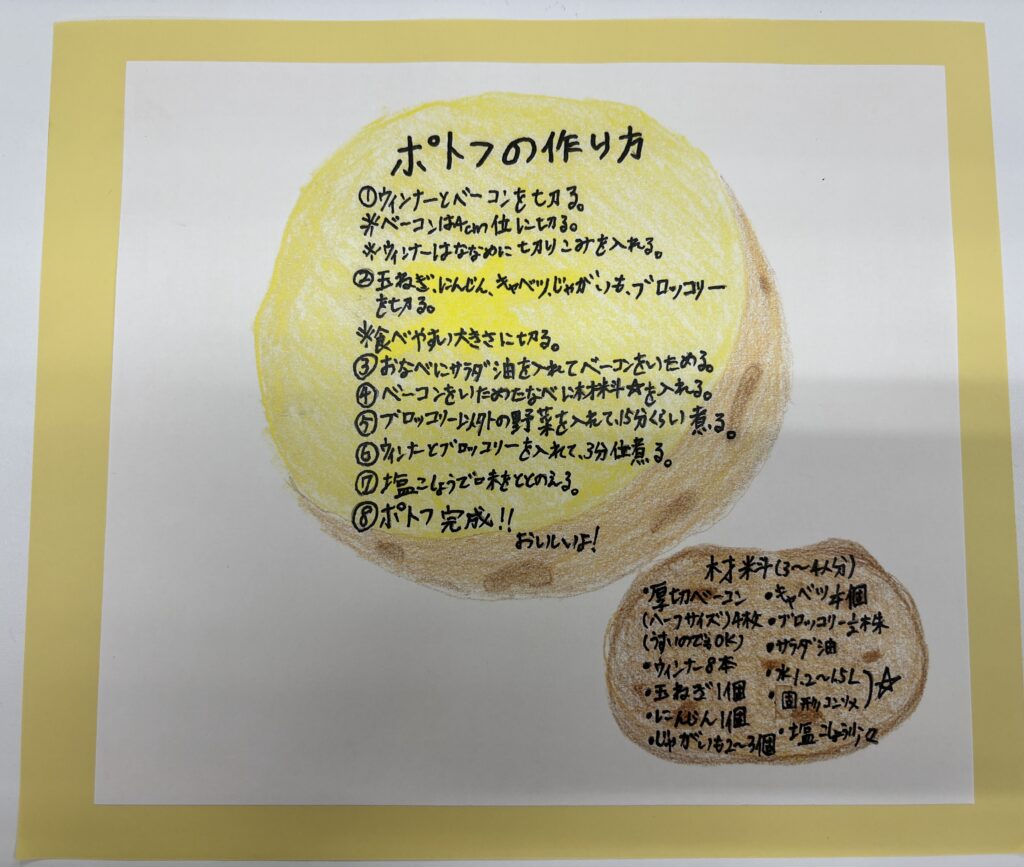 ポトフの作り方
①ウィンナーとベーコンを切る。
※ベーコンは4cm位に切る。
※ウィンナーはななめに切りこみを入れる。
②玉ねぎ、にんじん、キャベツ、じゃがいも、ブロッコリー
を切る。
※食べやすい大きさに切る。
③おなべにサラダ油を入れてベーコンをいためる。
④ベーコンをいためたなべに材料☆を入れる。
⑤ブロッコリー以外の野菜を入れて、15分くらい煮る。
⑥ウィンナーとブロッコリーを入れて、3分位煮る。
⑦塩こしょうで味をととのえる。
⑧ポトフ完成!!
おいしいよ!
材料(3〜4人分)
・厚切ベーコン
(ハーフサイズ)4枚
(うすいのでもOK)
・ウィンナー8本
・玉ねぎ1個
・にんじん1個
・じゃがいも2〜3個
・キャベツ 個
・ブロッコリー½株
・サラダ油
・水1.2〜1.5L
・固形コンソメ
☆
・塩こしょう少々